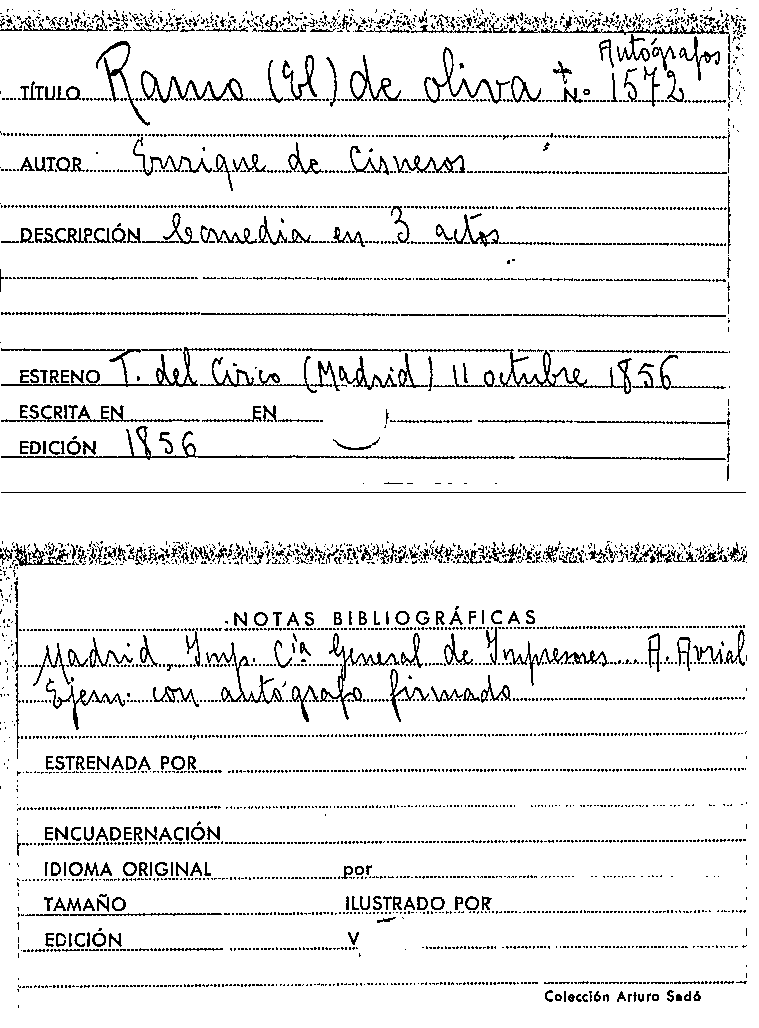 Autógrafos
TÍTULO Ramo (El) de oliva + N.º 1572
AUTOR Enrique de Cisneros
DESCRIPCIÓN Comedia en 3 actos
ESTRENO T. del Circo (Madrid) 11 octubre 1856
ESCRITA EN EN
EDICIÓN 1856
NOTAS BIBLIOGRÁFICAS
Madrid, Imp. Cía General de Impresores... A. Avrial
Ejem. con autógrafo firmado
ESTRENADA POR
ENCUADERNACIÓN
IDIOMA ORIGINAL por
TAMAÑO ILUSTRADO POR
EDICIÓN V
Colección Arturo Sedó